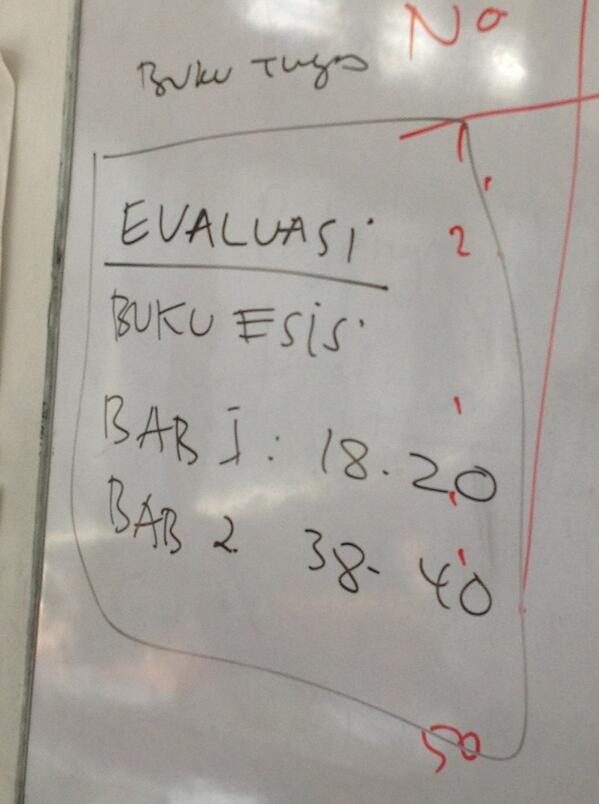 No
Buku Tugas
1
EVALUASI
2
BUKU ESIS
BAB I : 18 - 20
BAB 2 38 - 40
50